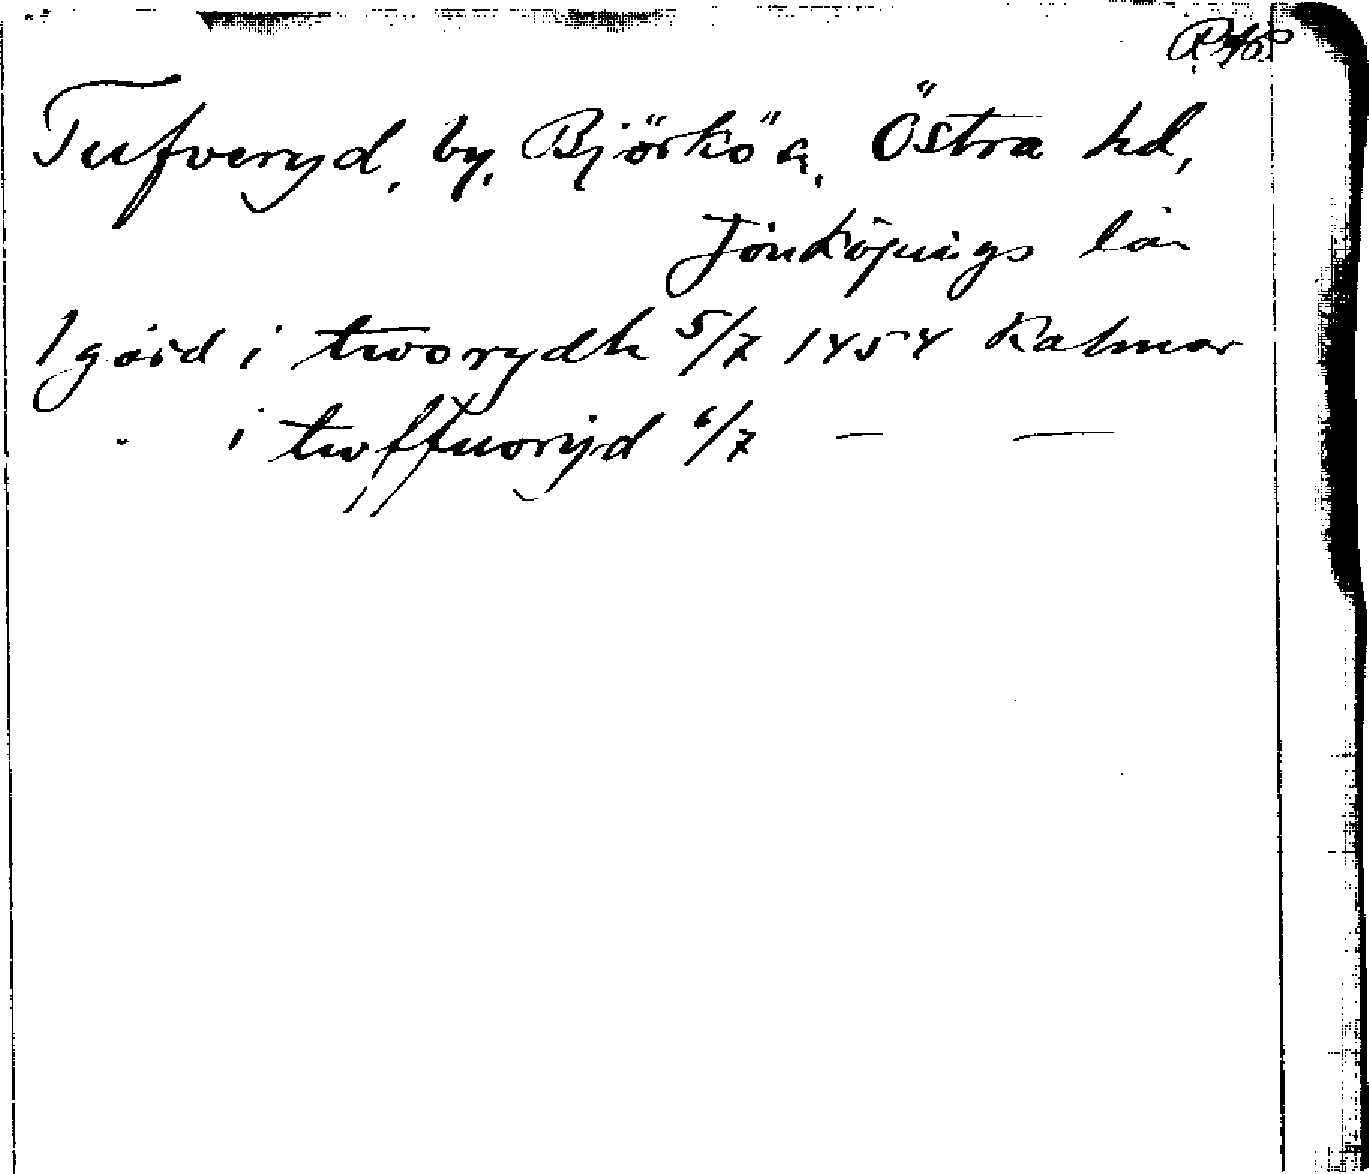 Tufveryd, by, Björkö sn, Östra hd,
Jönköpings län
1 gård i tworydh 5/7 1454 Kalmar
" i twffuoryd 6/7 — —